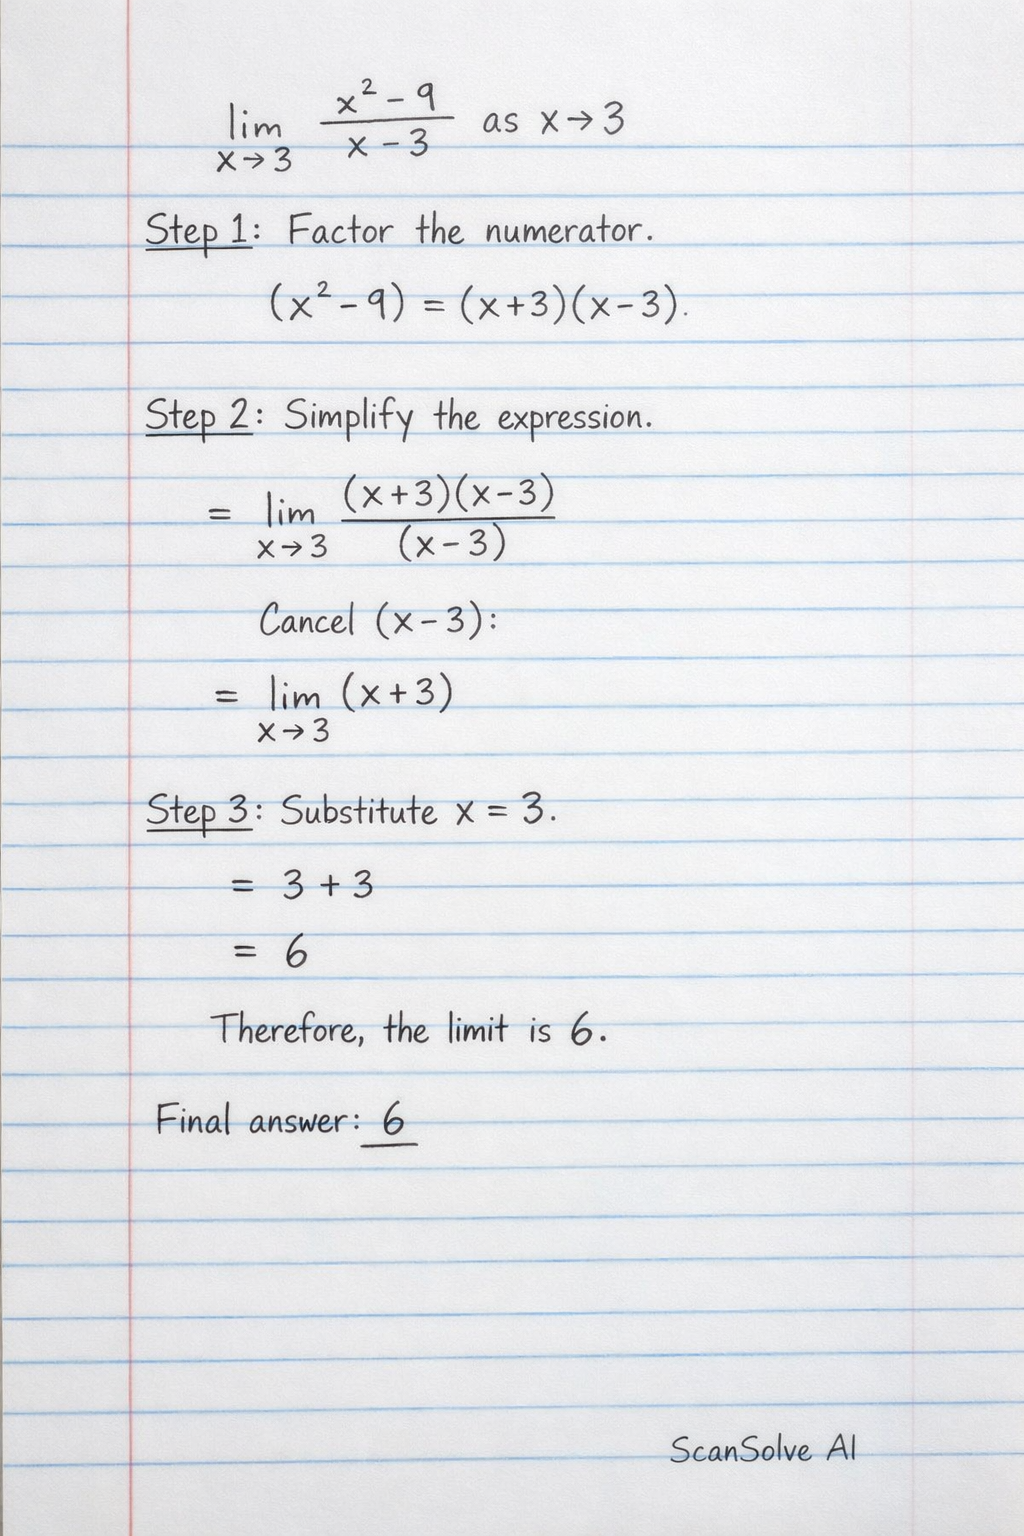 lim x→3 (x² - 9)/(x - 3) as x→3
Step 1: Factor the numerator.
(x² - 9) = (x+3)(x-3).
Step 2: Simplify the expression.
= lim x→3 (x+3)(x-3)/(x-3)
Cancel (x-3):
= lim x→3 (x+3)
Step 3: Substitute x = 3.
= 3 + 3
= 6
Therefore, the limit is 6.
Final answer: 6
ScanSolve AI